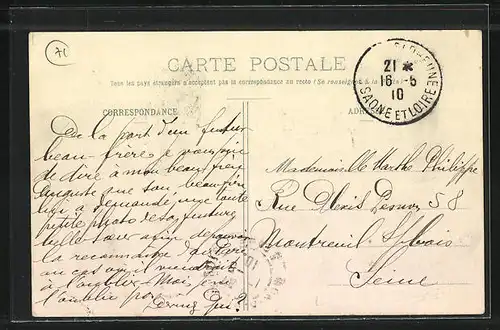 71
CARTE POSTALE
Tous les pays étrangers n'acceptent pas la correspondance au recto (Se renseigner à la poste)
CORRESPONDANCE
De la part d'un futur
beau-frère je vous prie
de dire à mon beau-frère
Auguste que son beau-frère
lui a demandé une toute
petite photo de sa future
belle sœur afin de pouvoir
la reconnaître
au cas où il viendrait
à l'oublier Moi je ne
l'oublie pas
Devinez Qui?
21 *
16 -5
10
SAONE ET LOIRE
Mademoiselle Marthe Philippe
Rue Alexis Pesnon 58
Montreuil s/Bois
Seine